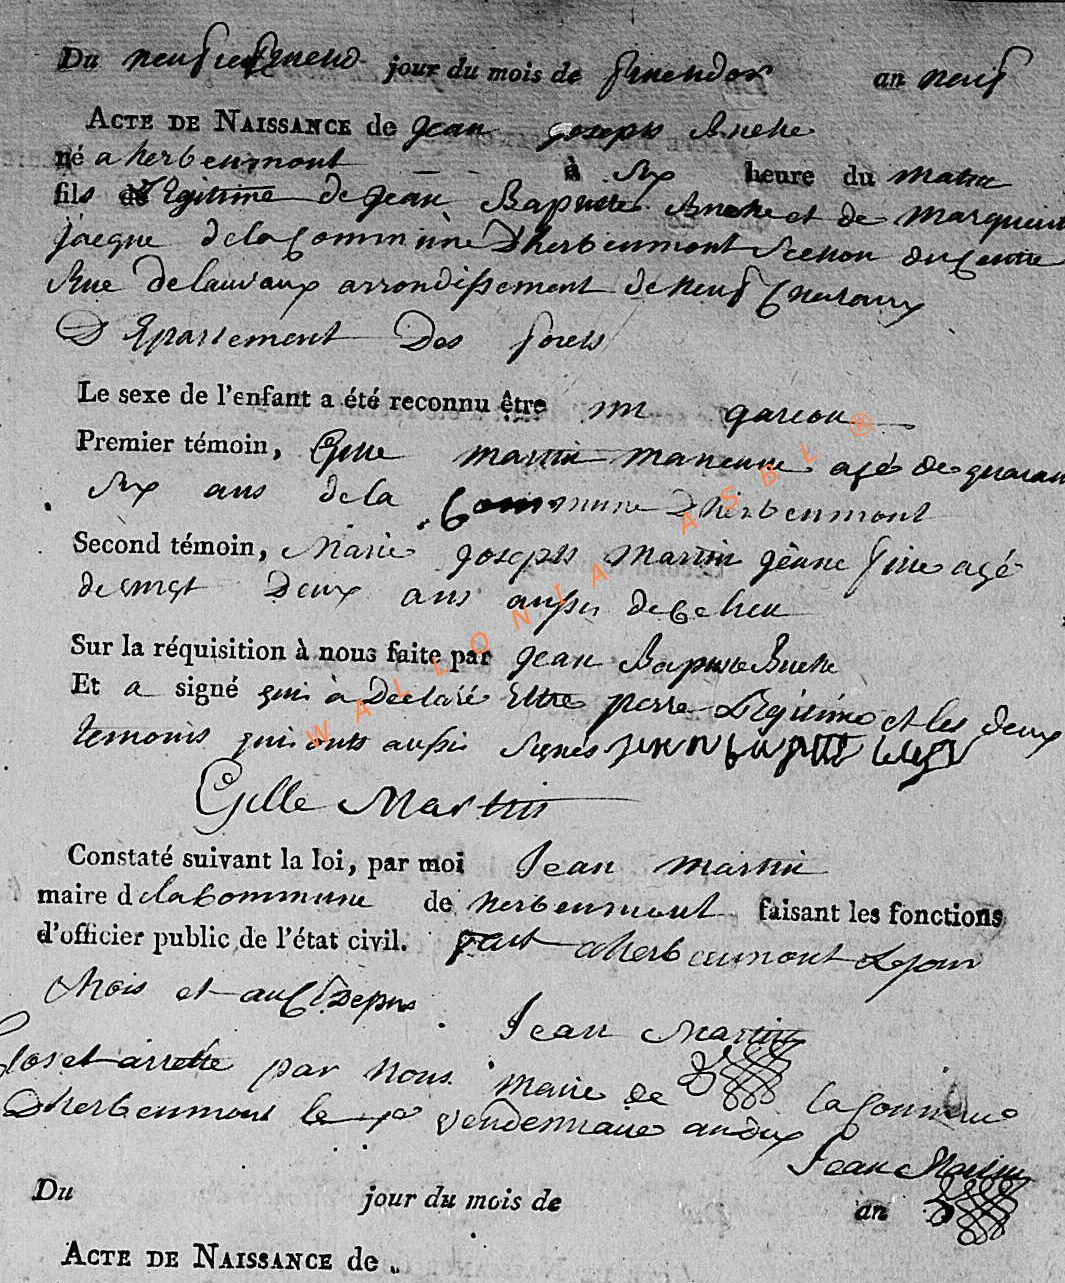 Du neufieme jour du mois de an neuf
ACTE DE NAISSANCE de jean joseph
né a herbeumont à six heure du matin
fils de Legitime de jean Baptiste et de marguerit
jacque de la Commune D'herbeumont Section du Centre
Rue De lauvaux arrondissement de neuf Chateaux
Departement Des forets
Le sexe de l'enfant a été reconnu être un garcon
Premier témoin, Gille martin agé de quarant
Six ans de la Commune D'herbeumont
Second témoin, Marie joseph Martin jeune fille agé
de vingt Deux ans aussi de Ce lieu
Sur la réquisition à nous faite par jean Baptiste
Et a signé qui à Déclaré Etre perre Légitime et les deux
temoins qui onts aussi Signés
Gille Martin
Constaté suivant la loi, par moi Jean martin
maire d elaCommune de herbeumont faisant les fonctions
d'officier public de l'état civil. fait a herbeumont Le jour
Mois et an
Jean Martin
Clos et arretté par Nous maire de la Commune
D'herbeumont le vendemiaire an dix
Jean Martin
Du jour du mois de an
ACTE DE NAISSANCE de
WALLONIA ASBL ®